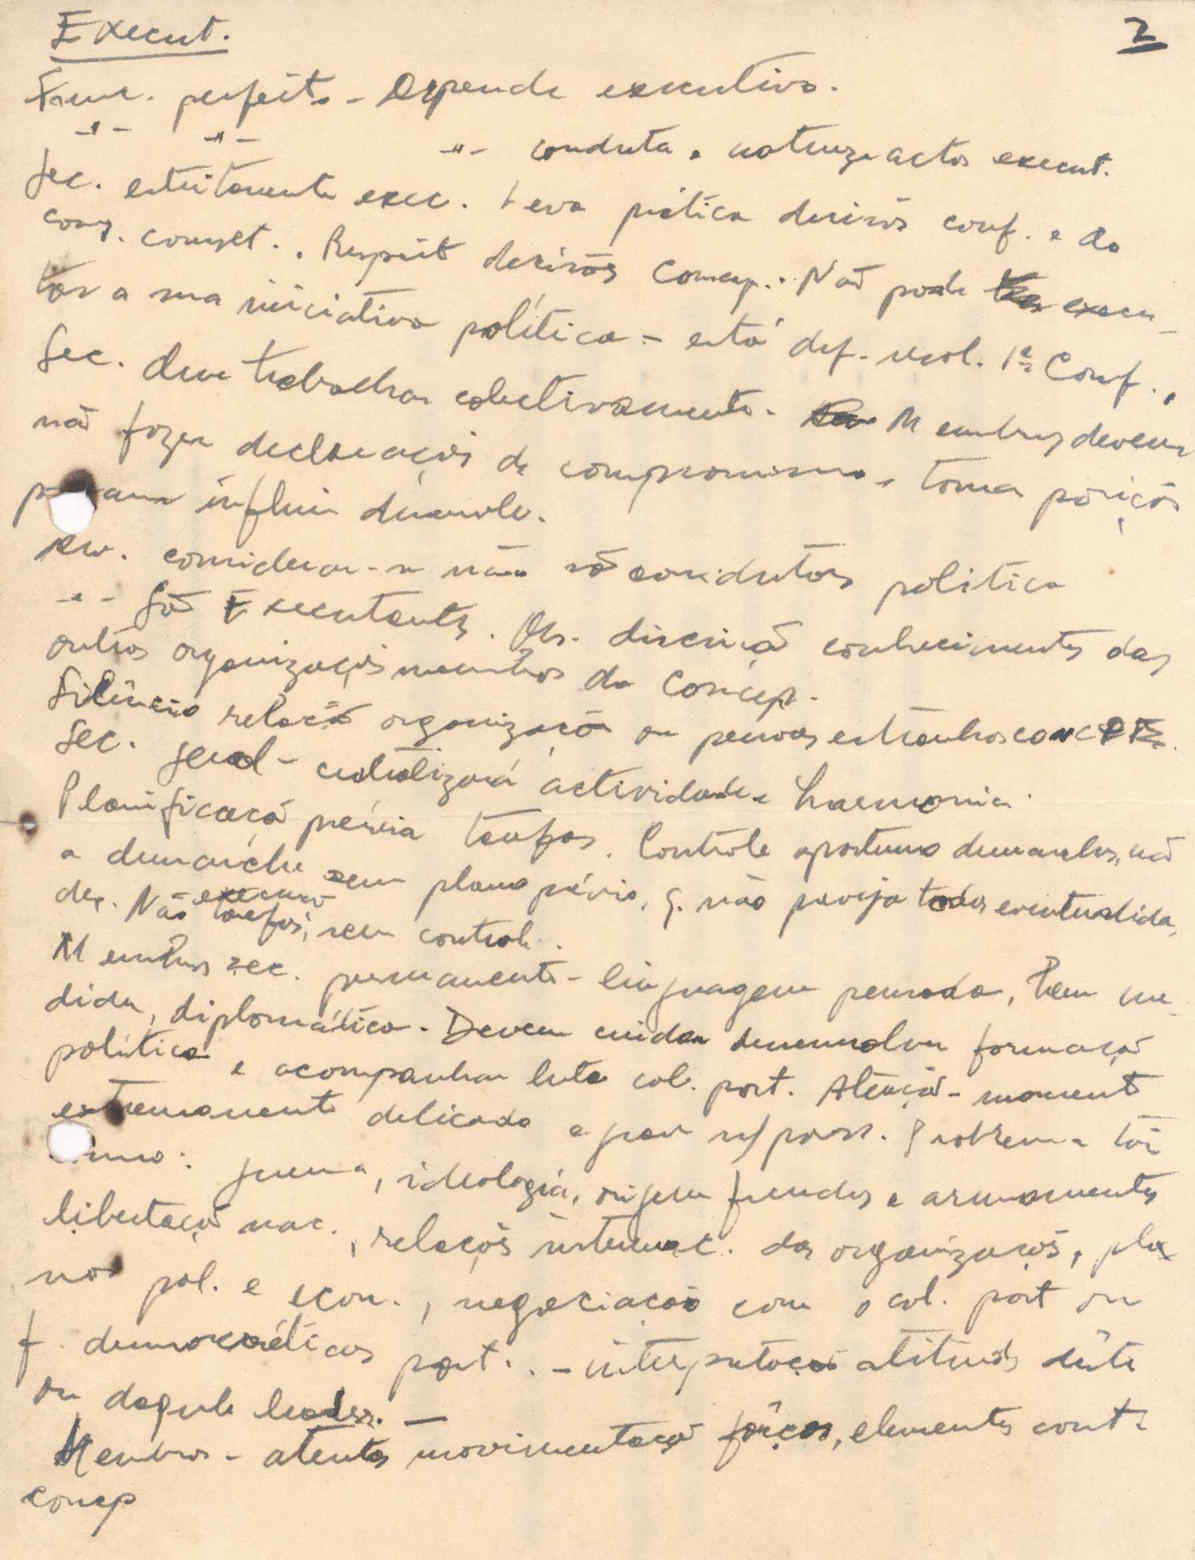 Execut.
2
Func. perfeito - Depende executivo.
-"- -"- -"- conduta e natureza actos execut.
Sec. estritamente exec. Leva prática decisões conf. e do
cons. consult. . Respeit decisões Concp. . Não pode execu-
tar a sua iniciativa política - está def. resol. 1ª Conf. ,
Sec. deve trabalhar colectivamente. Membros devem
não fazer declarações de compromisso, tomar posições
possam influir desenvolv.
considerar-se não são condutores política
-"- São Executantes. Obs. discrição conhecimentos das
outras organizações membros da Concp.
Silêncio relação organização ou pessoas estranhos CONCP.
Sec. geral - centralizará actividade e harmonia.
Planificação prévia tarefas. Controle oportuno demarches, não
a demarche sem plano prévio, q. não preveja todas eventualida-
des. Não execução tarefas, sem controle.
Membros sec. permanente - linguagem pensada, bem me-
dida, diplomática. Devem cuidar desenvolver formação
política e acompanhar luta col. port. Atenção - momento
extremamente delicado e grav n/ povos. Problema
: guerra, ideologia, origem fundos e armamentos
libertação nac., relações internac. das organizações, pla-
nos pol. e econ., negociação com o col. port ou
f. democráticas port. . - interpretação atitudes deste
ou daquele leader. —
Membros - atentos movimentação forças, elementos cont.
concp